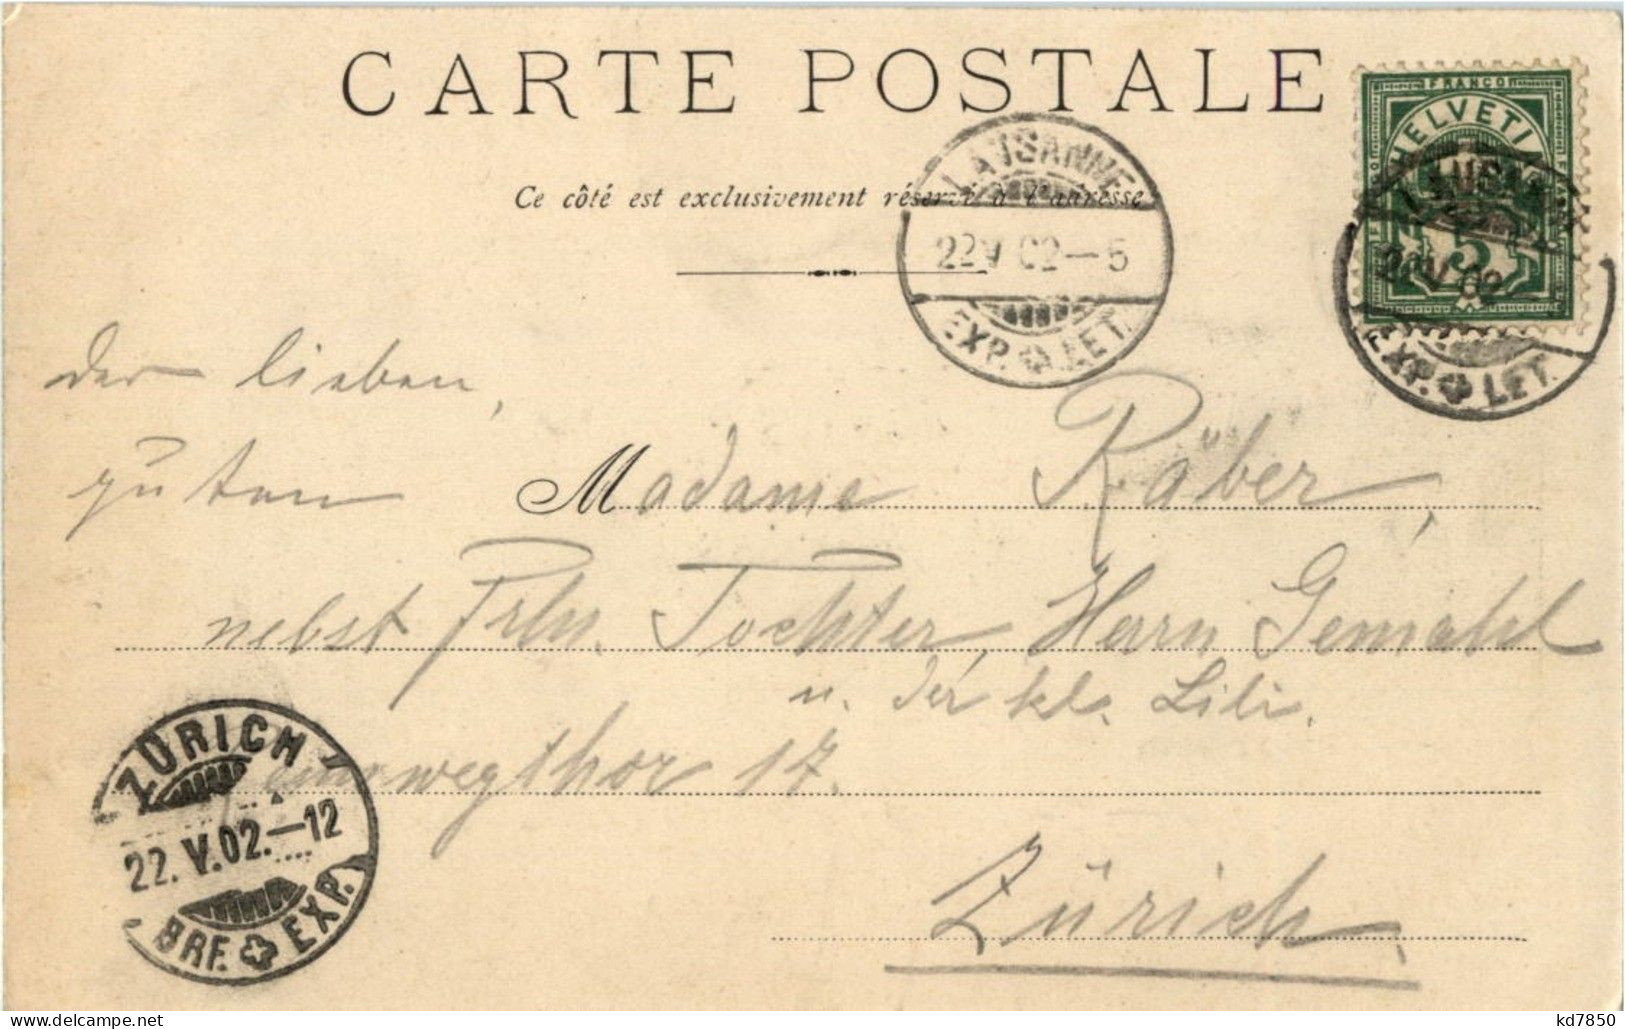 CARTE POSTALE
Ce côté est exclusivement réservé à l'adresse
FRANCO
HELVETI
5
LAUSANNE
22 V 02 — 5
EXP. LET.
LAUSANNE
22 V 02
EXP. LET.
der lieben,
guten Madame Räber,
nebst Frln. Tochter, Herrn Gemahl
u. der kl. Lili.
17.
Zürich
ZÜRICH
22. V. 02. — 12
BRF. EXP.
kd7850